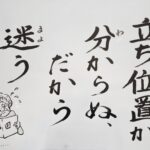 立ち位置が
分からぬ、
だから
迷う